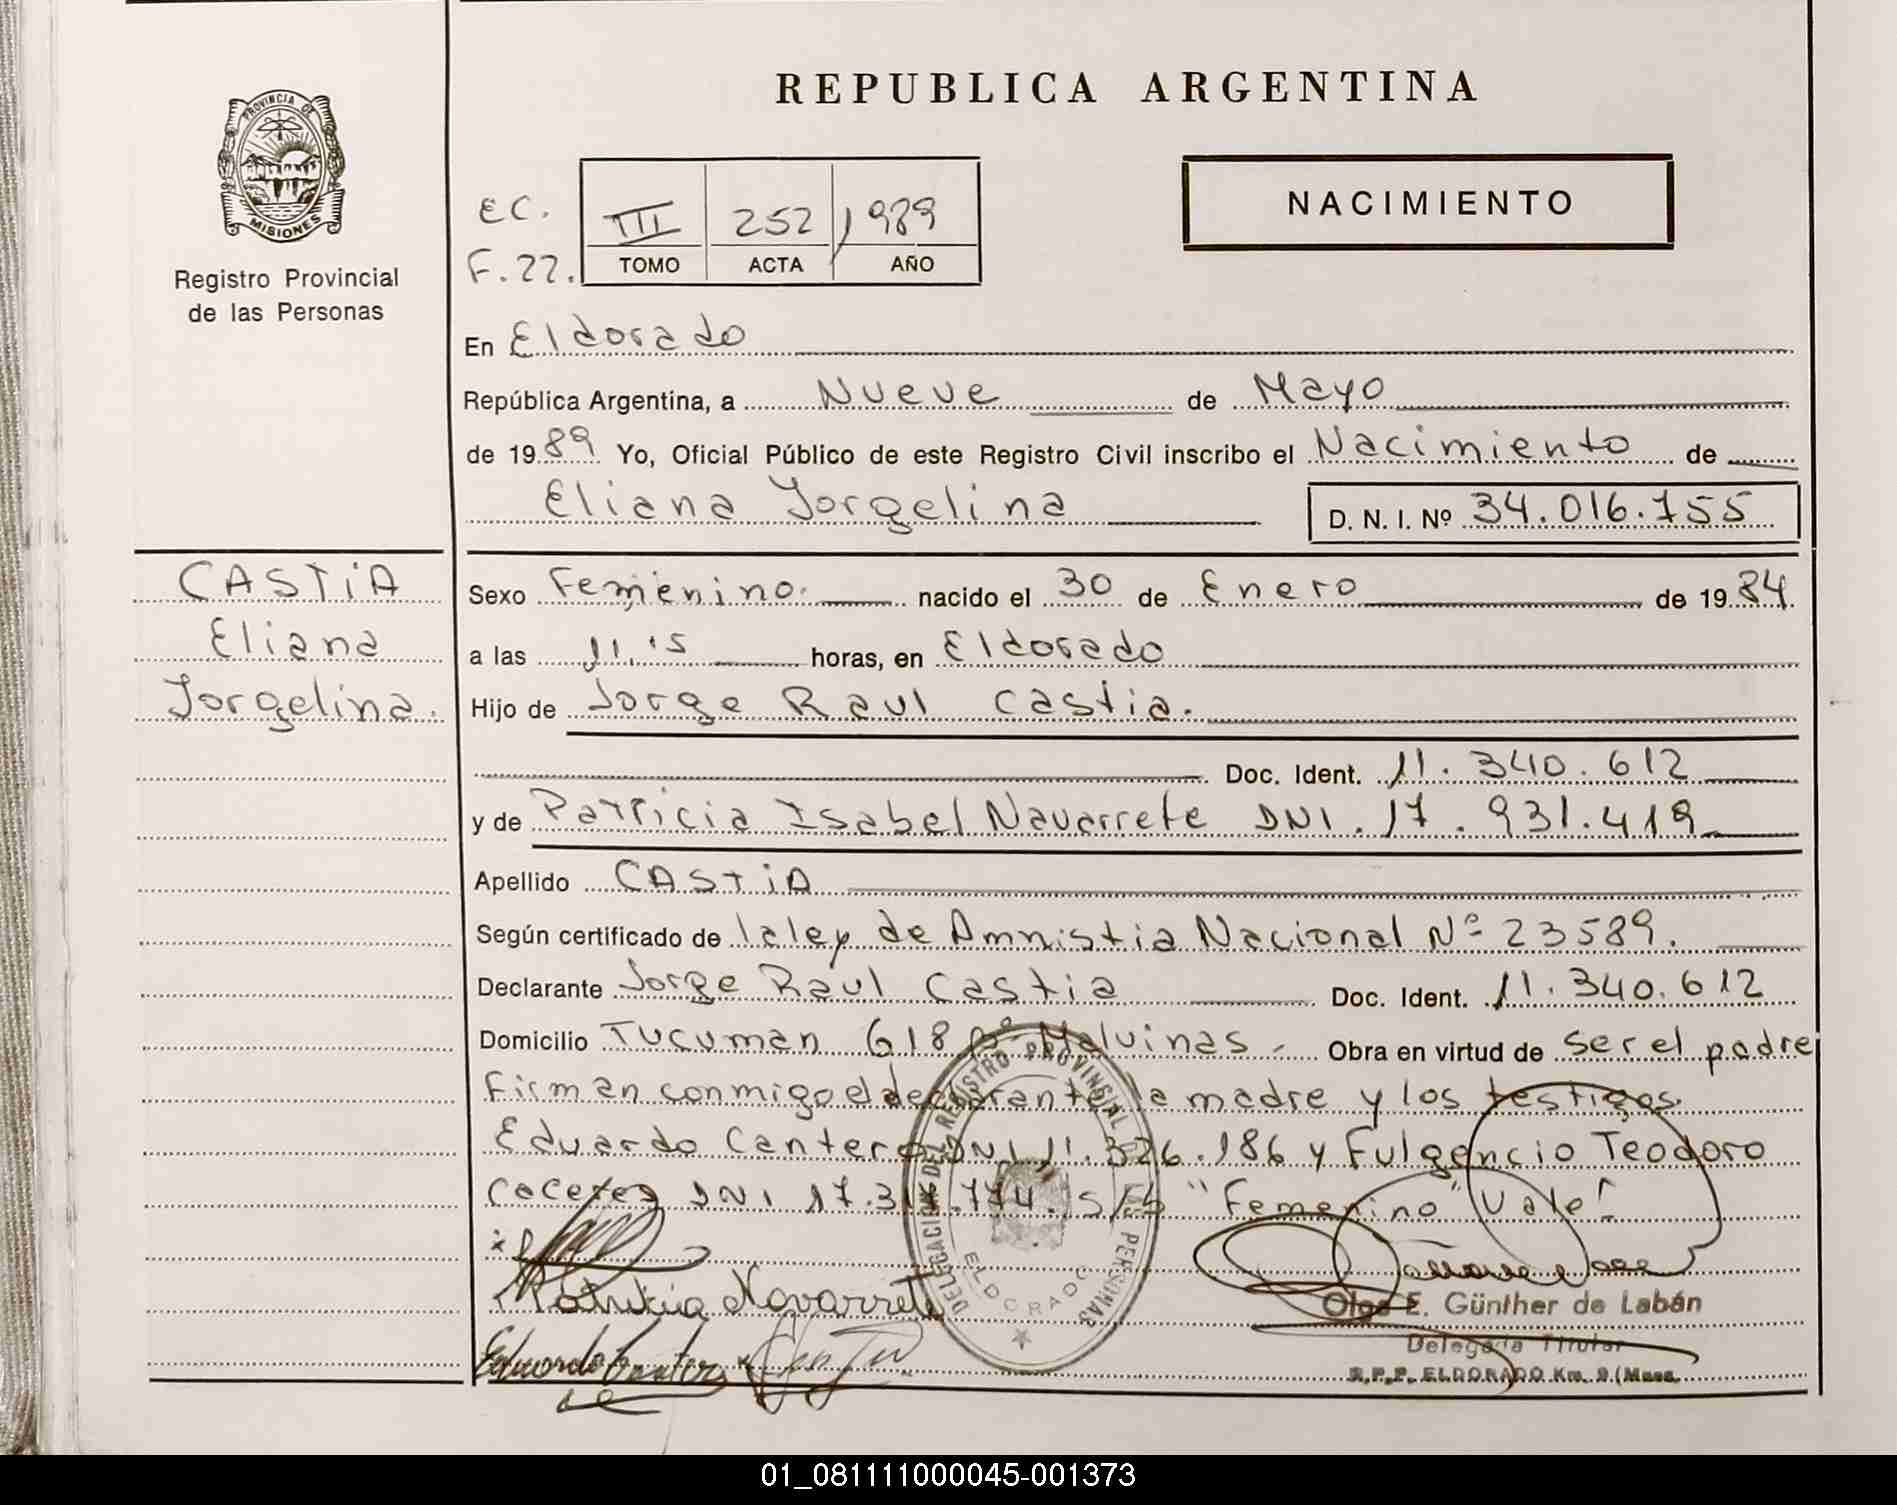 REPUBLICA ARGENTINA
PROVINCIA DE
MISIONES
Registro Provincial
de las Personas
NACIMIENTO
EC.
F. 22.
III 252 1989
TOMO ACTA AÑO
En Eldorado
República Argentina, a Nueve de Mayo
de 1989 Yo, Oficial Público de este Registro Civil inscribo el Nacimiento de
Eliana Jorgelina D. N. I. Nº 34.016.155
CASTiA
Eliana
Jorgelina.
Sexo Femenino. nacido el 30 de Enero de 1984.
a las 11.15 horas, en Eldorado
Hijo de Jorge Raul Castia.
Doc. Ident. 11.340.612
y de Patricia Isabel Navarrete DNI. 17.931.419
Apellido CASTiA
Según certificado de la ley de Amnistia Nacional Nº 23589.
Declarante Jorge Raul Castia Doc. Ident. 11.340.612
Domicilio Tucuman 618 Bº Malvinas - Obra en virtud de ser el padre
Firman conmigo el declarante la madre y los testigos
Eduardo Cantero DNI 11.326.186 y Fulgencio Teodoro
Caceres DNI 17.314.774. S/b "Femenino" Vale!
Patricia Navarrete
Eduardo Cantero
DELEGACION DEL REGISTRO PROVINCIAL DE LAS PERSONAS
ELDORADO
Olga E. Günther de Labán
Delegada Titular
R.P.P. ELDORADO Km. 9 (Mnes.
01_081111000045-001373